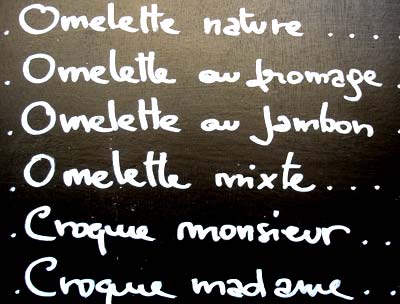 . Omelette nature ....
. Omelette au fromage .
. Omelette au Jambon .
. Omelette mixte ....
. Croque monsieur ..
. Croque madame ..